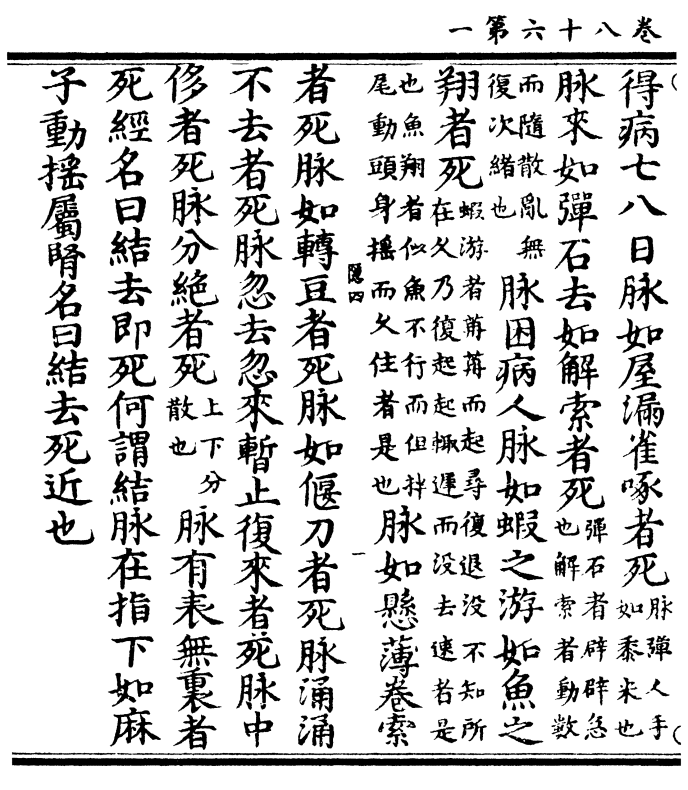 卷八十六第一
得病七八日脉如屋漏雀啄者死脉彈人手如黍米也
脉來如彈石去如解索者死彈石者辟辟急也解索者動數
而隨散亂無復次緒也脉困病人脉如蝦之游如魚之
翔者死蝦游者苒苒而起尋復退没不知所在乆乃復起起輙遲而没去速者是
也魚翔者似魚不行而但拌尾動頭身摇而乆住者是也脉如懸薄卷索
隱四
一
者死脉如轉豆者死脉如偃刀者死脉涌涌
不去者死脉忽去忽來暫止復來者死脉中
侈者死脉分絶者死上下分散也脉有表無裏者
死經名曰結去即死何謂結脉在指下如麻
子動摇屬腎名曰結去死近也